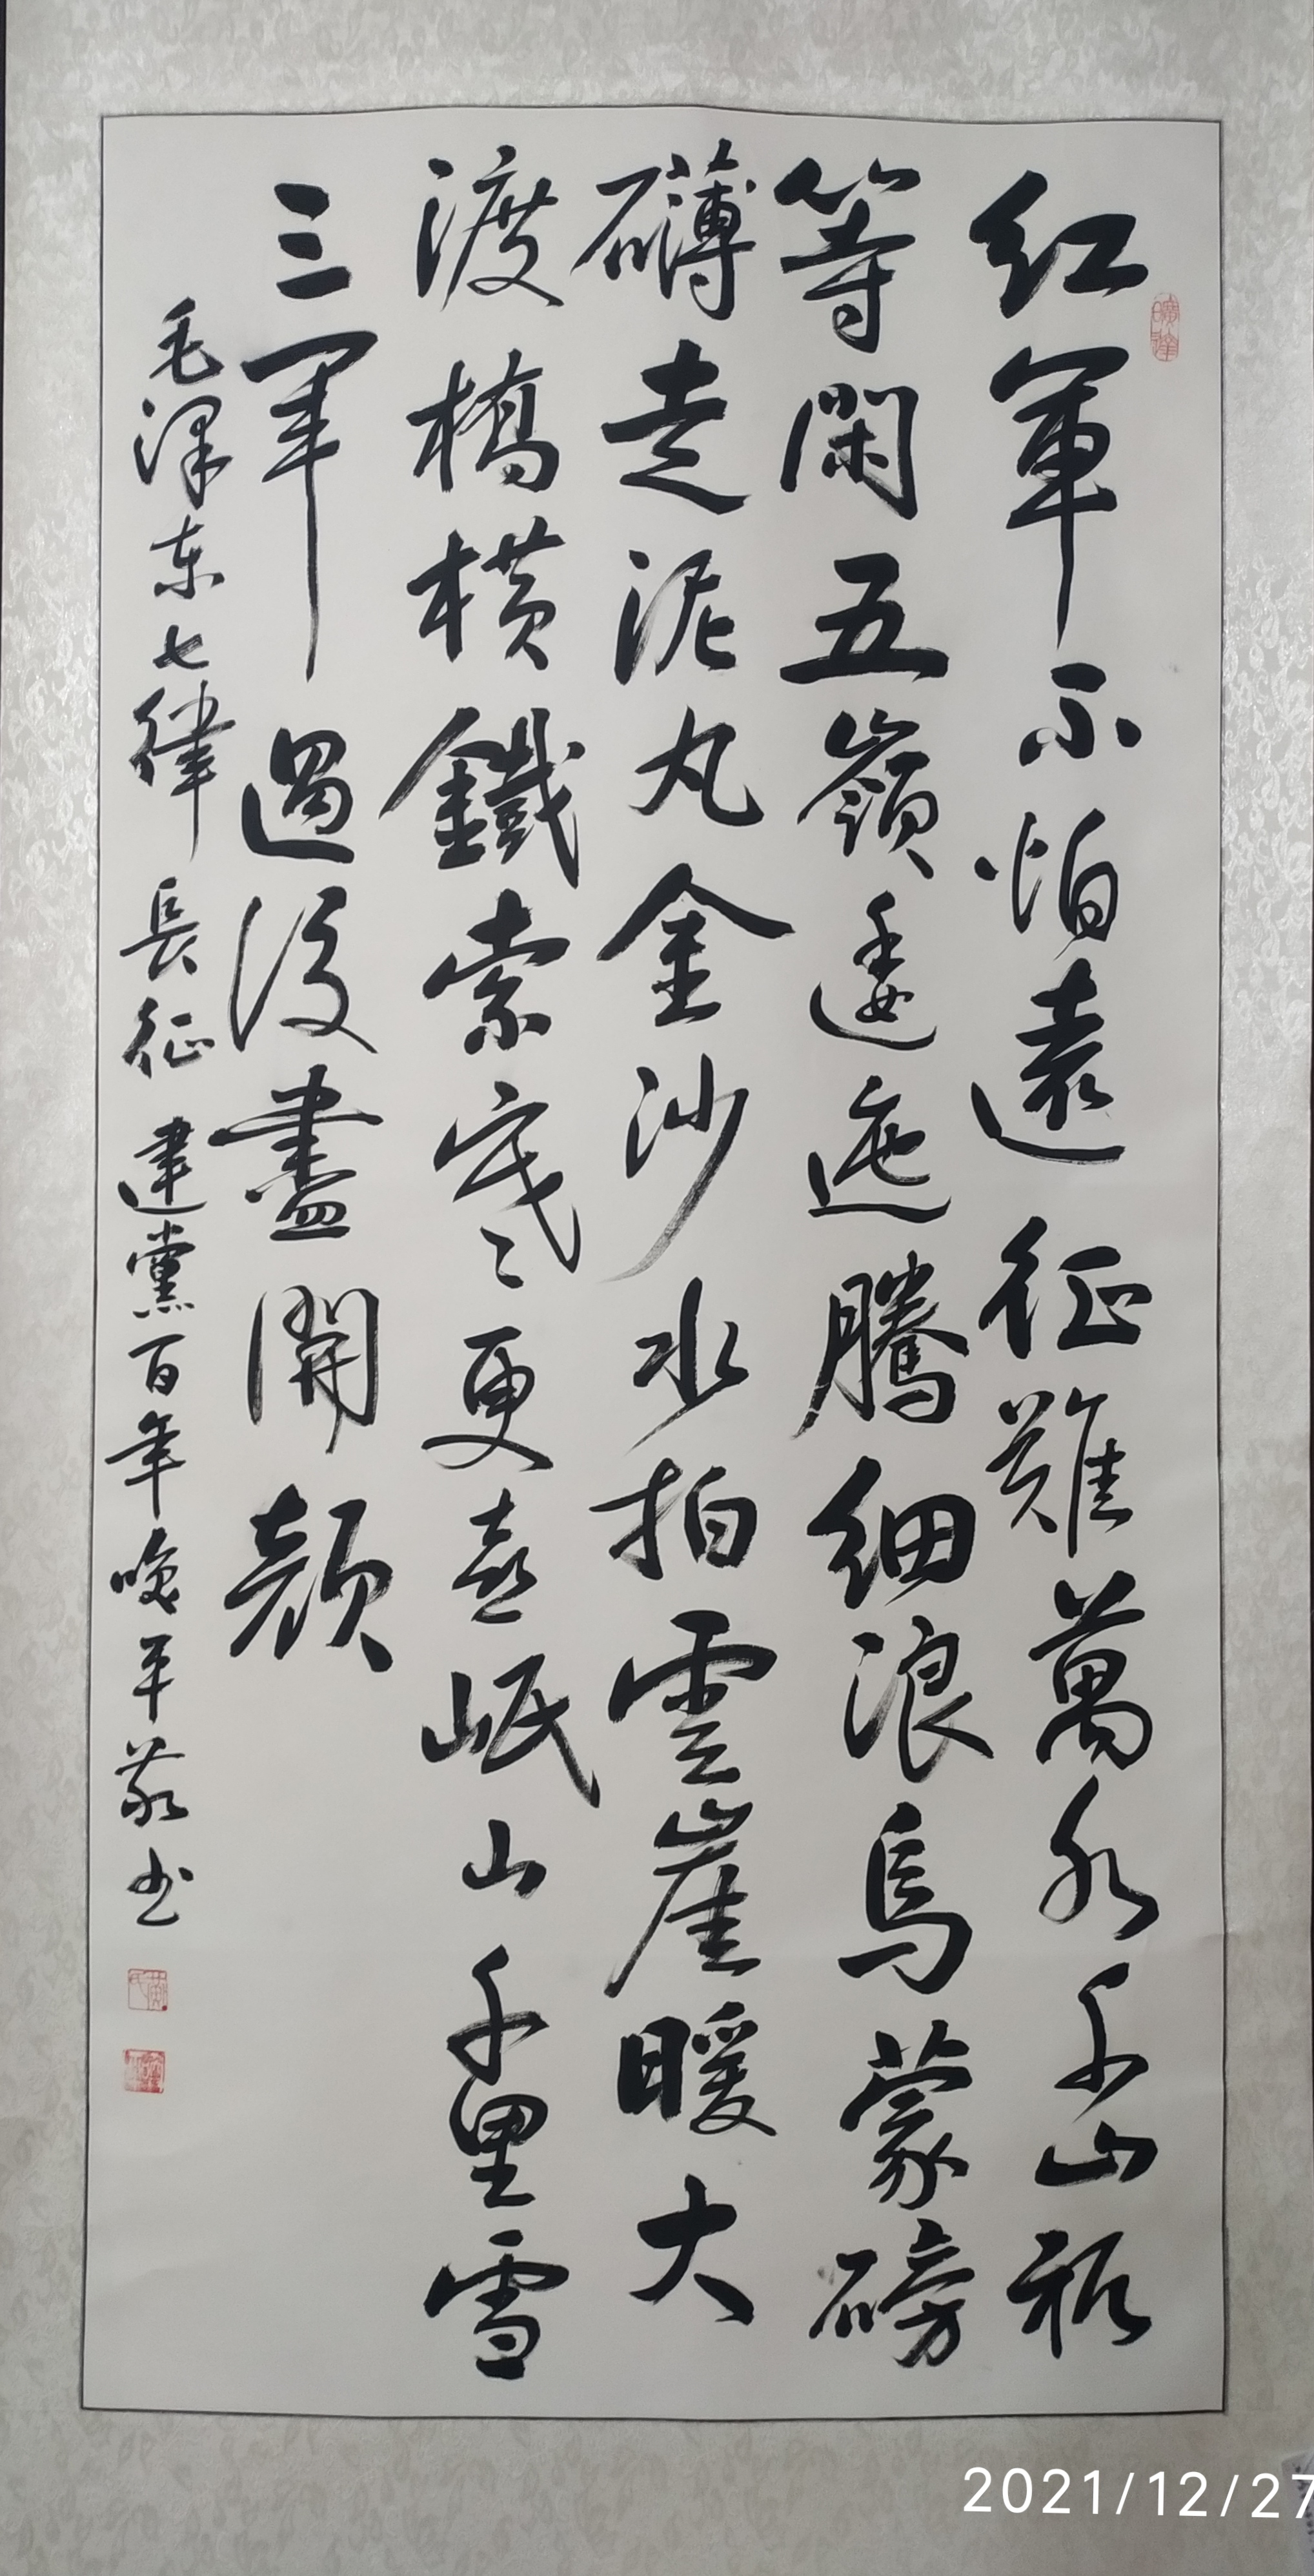 红軍不怕遠征難萬水千山祗
等閑五嶺逶迤騰細浪烏蒙磅
礴走泥丸金沙水拍雲崖暖大
渡橋橫鐵索寒〻更喜岷山千里雪
三軍過後盡開顏
毛澤东七律長征建黨百年喚平敬书
2021/12/27